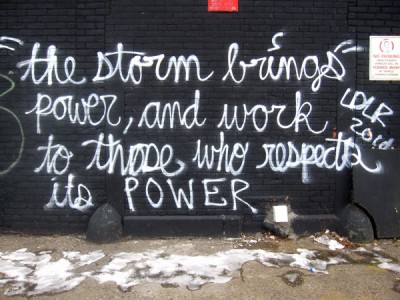 "the storm brings"
power, and work
to those who respects
its POWER
LDLR